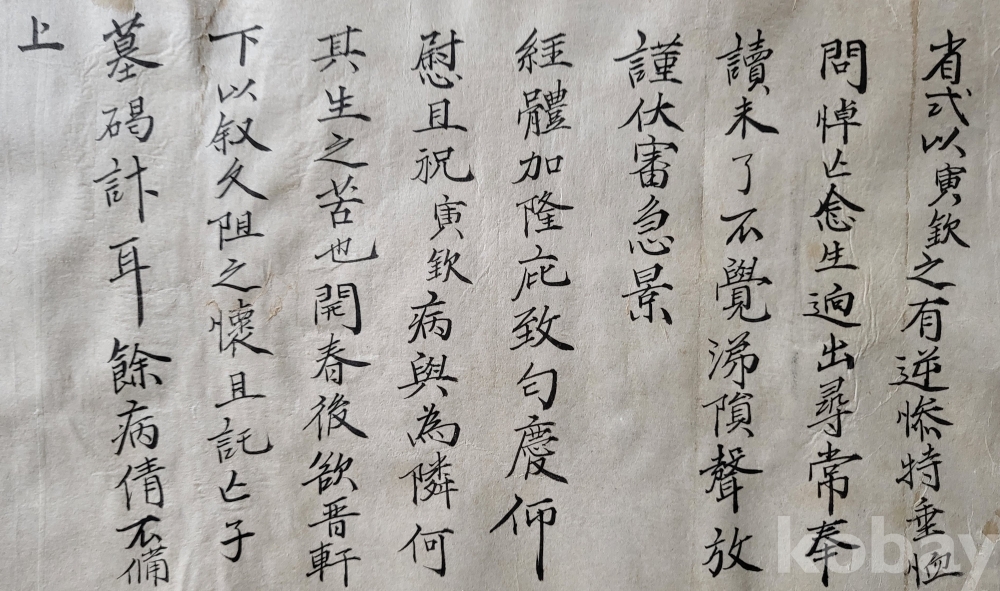 省式以寅欽之有逆慘特垂恤
問悼亡念生逈出尋常奉
讀未了不覺涕隕聲放
謹伏審急景
經體加隆庇致勻慶仰
慰且祝寅欽病與為隣何
其生之苦也開春後欲晉軒
下以叙久阻之懷且託亡子
墓碣計耳餘病倩不備
上
kobay